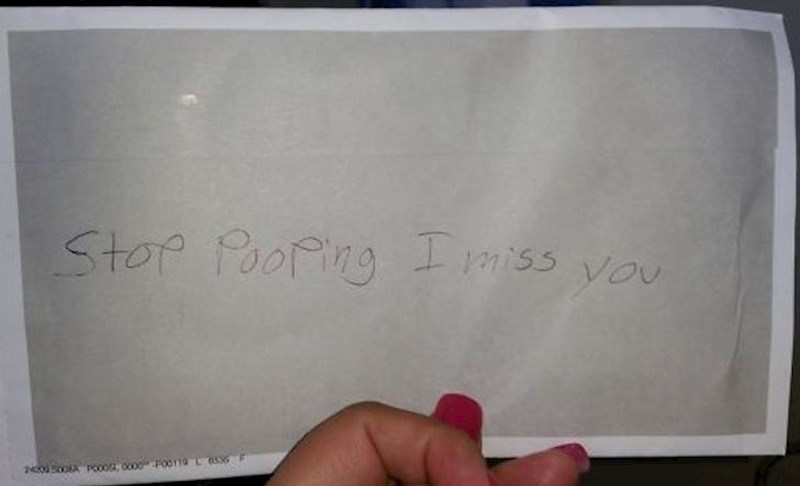 Stop Pooping I miss you
24209 S008A P000SL 0000** -P00119 L 6535 F